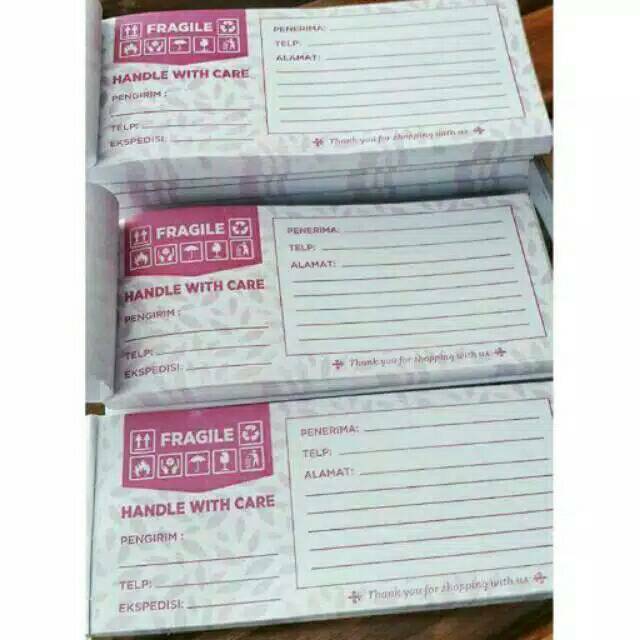 FRAGILE
HANDLE WITH CARE
PENGIRIM :
TELP:
EKSPEDISI:
PENERIMA:
TELP:
ALAMAT:
Thank you for shopping with us
FRAGILE
HANDLE WITH CARE
PENGIRIM :
TELP:
EKSPEDISI:
PENERIMA:
TELP:
ALAMAT:
Thank you for shopping with us
FRAGILE
HANDLE WITH CARE
PENGIRIM :
TELP:
EKSPEDISI:
PENERIMA:
TELP:
ALAMAT:
Thank you for shopping with us